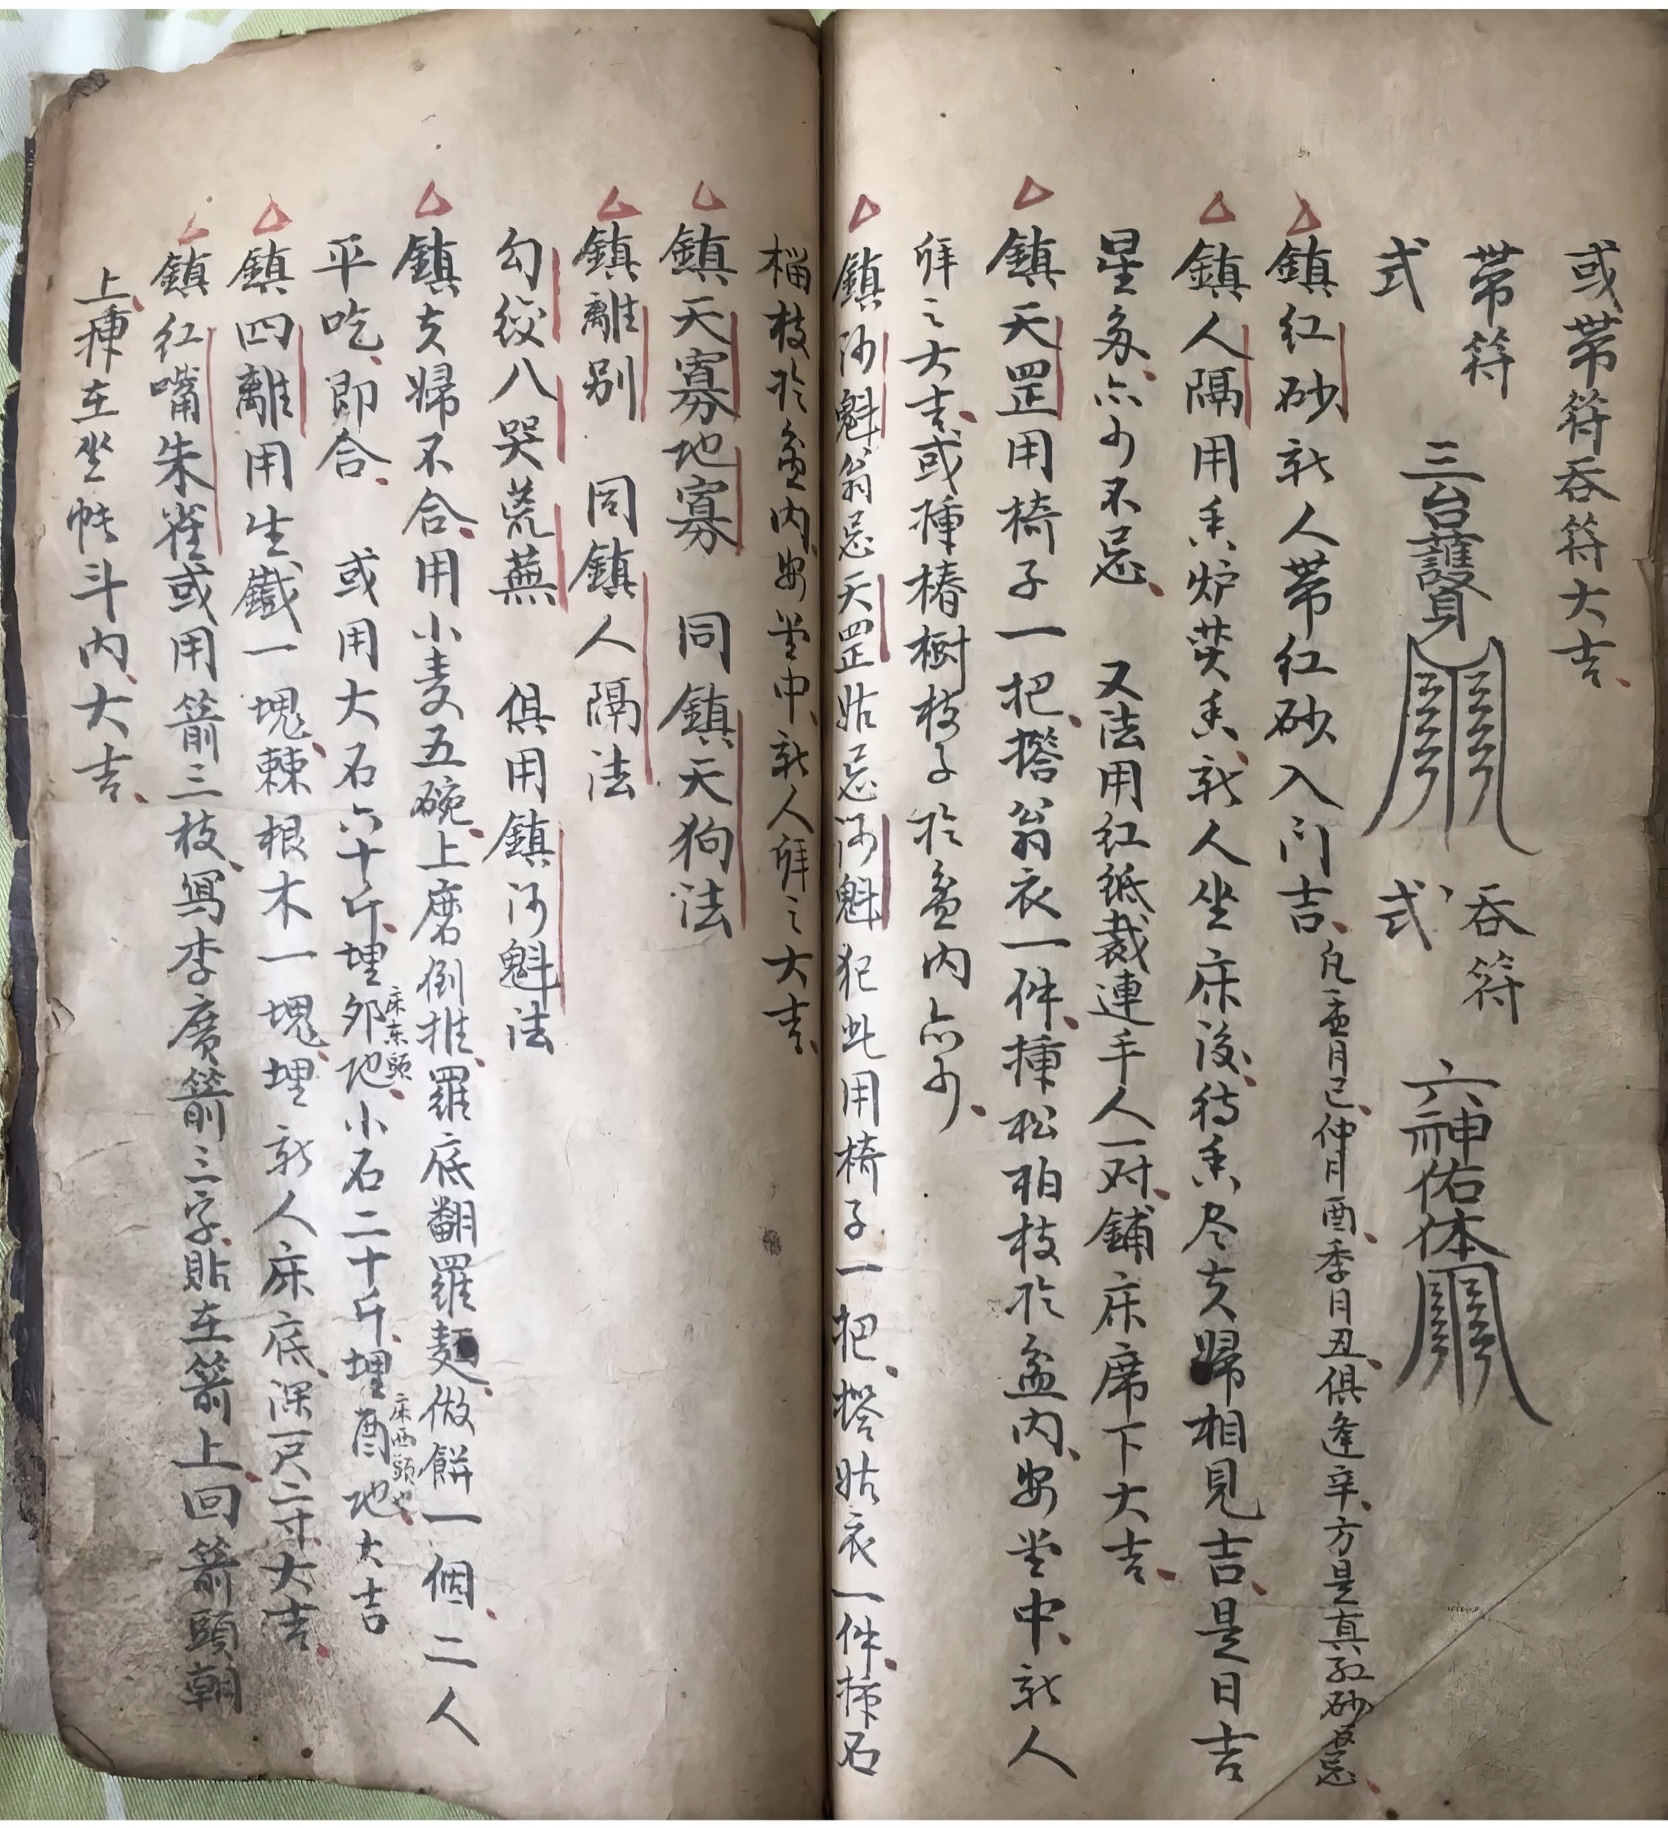 或帶符吞符大吉
帶符式
三台護身
吞符式
六神佑体
鎮红砂新人帶红砂入门吉凡孟月巳仲月酉季月丑俱逢辛方是真红砂忌
鎮人隔用香炉焚香新人坐床後待香尽夫婦相見吉是日吉
星多亦可不忌 又法用红紙裁連手人一对鋪床席下大吉
鎮天罡用椅子一把搭翁衣一件揷松柏枝於盆内安堂中新人
拜之大吉或揷椿樹枝子於盆内亦可
鎮河魁翁忌天罡姑忌河魁犯此用椅子一把搭姑衣一件揷石
榴枝於盆内安堂中新人拜之大吉
鎮天寡地寡 同鎮天狗法
鎮離别 同鎮人隔法
勾绞八哭荒蕪 俱用鎮河魁法
鎮夫婦不合用小麦五碗上磨倒推羅底翻羅麵做餅一個二人
平吃即合 或用大石六十斤埋卯地床东頭小石二十斤埋酉地床西頭也大吉
鎮四離用生鐵一塊棘根木一塊埋新人床底深一尺二寸大吉
鎮红嘴朱雀或用箭三枝寫李廣箭三字貼在箭上回箭頭朝
上揷在坐帐斗内大吉